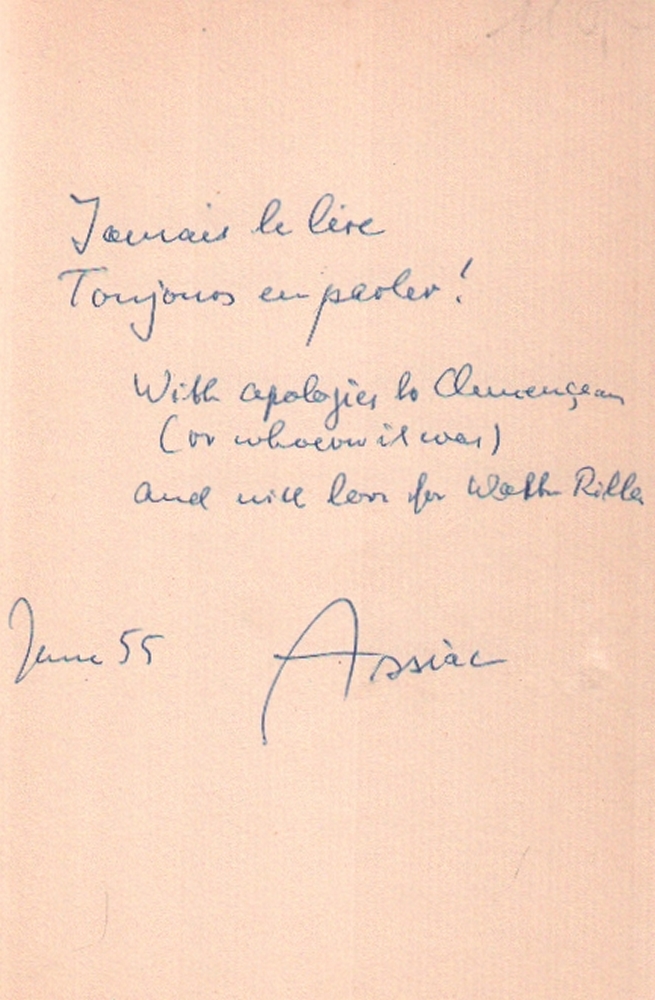 Jamais le lire
Toujours en parler!
With apologies to Clemençeau
(or whoever it was)
and with love for Walter Rilla
June 55
Assiac